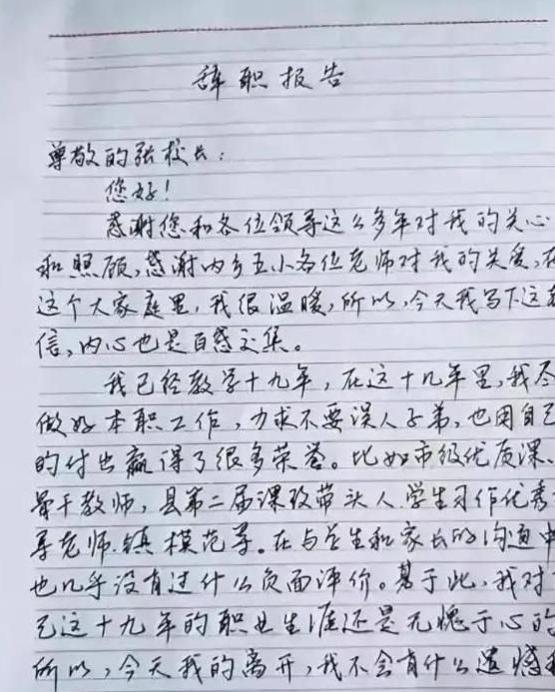 辞职报告
尊敬的张校长：
您好！
感谢您和各位领导这么多年对我的关心
和照顾，感谢内乡五小各位老师对我的关爱，在
这个大家庭里，我很温暖，所以，今天我写下这
信，内心也是百感交集。
我已经教学十九年，在这十几年里，我尽
做好本职工作，力求不要误人子弟，也用自己
的付出赢得了很多荣誉。比如市级优质课、
骨干教师，县第二届课改带头人，学生习作优秀
导老师，镇模范等。在与学生和家长的沟通中
也几乎没有过什么负面评价。基于此，我对
己这十九年的职业生涯还是无愧于心的
所以，今天我的离开，我不会有什么遗憾